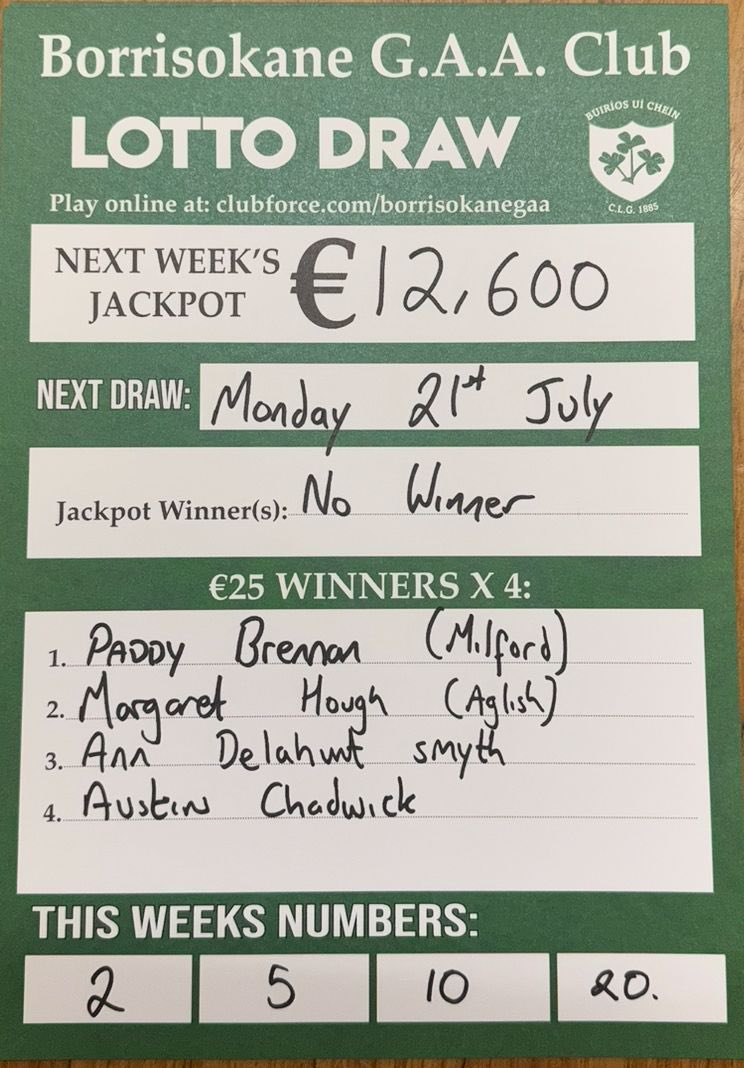 Borrisokane G.A.A. Club
LOTTO DRAW
BUIRÍOS UÍ CHEIN
C.L.G. 1885
Play online at: clubforce.com/borrisokanegaa
NEXT WEEK'S
JACKPOT
€12,600
NEXT DRAW: Monday 21st July
Jackpot Winner(s): No Winner
€25 WINNERS X 4:
1. PADDY Brennan (Milford)
2. Margaret Hough (Aglish)
3. Ann Delahunt smyth
4. Austin Chadwick
THIS WEEKS NUMBERS:
2 5 10 20.